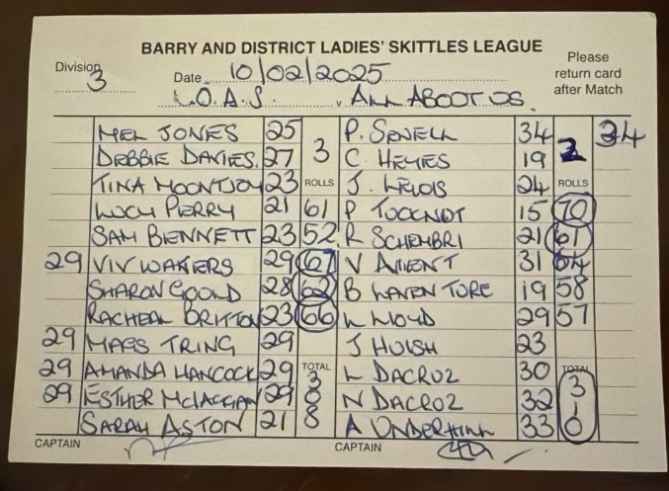 BARRY AND DISTRICT LADIES' SKITTLES LEAGUE
Division 3
Date 10/02/2025
Please return card after Match
L.O.A.S. v ALL ABOOT US.
MEL JONES 25 3 P. SEWELL 34 2 34
DEBBIE DAVIES. 27 C. HEYES 19
TINA MOONTJOY 23 ROLLS J. LEWIS 24 ROLLS
LUCY PERRY 21 61 P 15 70
SAM BENNETT 23 52 R SCHEMBRI 21 61
29 VIV WATERS 29 67 V 31 64
SHARON GOOLD 28 62 B 19 58
RACHEAL BRITTON 23 66 L LLOYD 29 57
29 MAGS TRING 29 J HUISH 23
29 AMANDA HANCOCK 29 TOTAL L DACRUZ 30 TOTAL
29 ESTHER 29 308 N DACROZ 32 310
SARAH ASTON 21 A UNDERHILL 33
CAPTAIN CAPTAIN